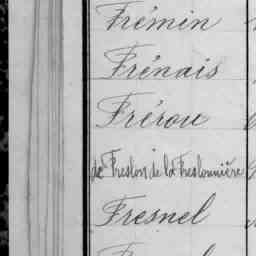 Frémin
Frénais
Frérou
de Freslon de la Freslonnière
Fresnel